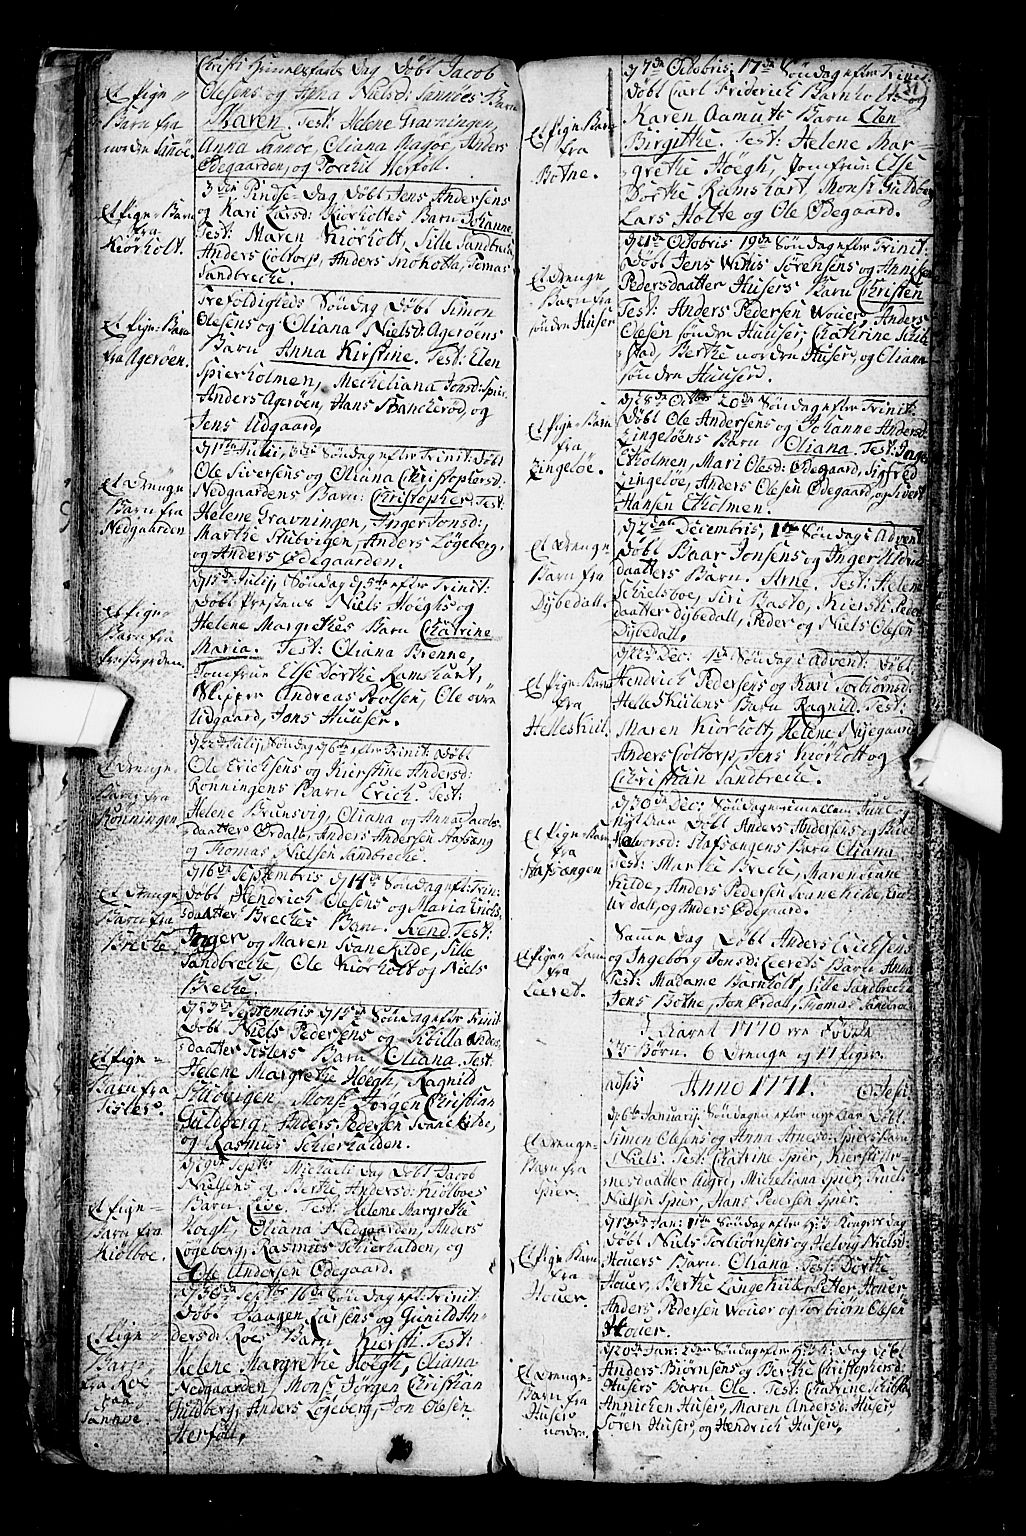 Christi Himmelfarts Dag Døbt Jacob
Et Pige-
Barn fra
nordre Sannøe.
Olesens og Nielsd: Sannøes Barn
Maren. Test: Helene Gravningen,
Anna Sannøe, Oliana Magøe, Anders
Ødegaarden, og Torckil Herføll.
Et Pige-Barn
fra
Kiørholt.
3die Pindse-Dag Døbt Jens Andersens
og Kari Larsd: Kiørholtes Barn Johanne.
Test: Maren Kiörholt, Sille Sandbrecke,
Anders Coltorp, Anders Tomas
Sandbrecke.
Et Pige-Barn
fra Agerøen.
Trefoldigheds Søndag Døbt Simon
Olesens og Oliana Nielsd: Agerøens
Barn Anna Kirstine. Test: Elen
Spierholmen, Micheliana Jonsd: Spier,
Anders Agerøen, Hans Stanckerød, og
Jens Udgaard.
Et Drenge-
Barn fra
Nedgaarden
Julii, Søndag efter Trinit: Døbt
Ole Siversens og Oliana Christophersd:
Nedgaardens Barn: Christopher. Test:
Helene Gravningen, Inger Jonsd:,
Marthe Stubvigen, Anders Løgeberg,
og Anders Ødegaarden.
Et Pige-
Barn fra
Præstegaarden.
d 15de Julij, Søndag d 5te efter Trinit:
Døbt Præstens Niels Høeghs og
Helene Margrethes Barn Chatrine
Maria. Test: Oliana Brenne,
Jomfrue Else Dorthe Ramshart,
Skipper Andreas Povlsen, Ole øvre
Udgaard, Jens Huuser.
Et Drenge-
Barn fra
Rønningen
d 22de Julij, Søndag d 6te efter Trinit: Døbt
Ole Erichsens og Kierstine Andersd:
Rønningens Barn Erich. Test:
Helene Brunsvig, Oliana og Anna Jacobs-
daatter Ørdalt, Anders Andersen Trafsang
og Thomas Nielsen Sandbrecke.
Et Drenge-
Barn fra
Brecke
d 16de Septembris d 14de Søndag eft: Trin:
Døbt Hendrich Olesens og Maria Erichs-
daatter Breckes Barn. Svend. Test:
Inger og Maren Svanekilde, Sille
Sandbrecke, Ole Kiörholt og Niels
Brecke.
Et Pige-
Barn fra
Testes.
d 23de Septembris d 15de Søndag efter Trinit:
Døbt Niels Pedersens og Sibilla Anders-
daatter Testers Barn Oliana. Test:
Helene Margrethe Høegh, Ragnild
Stubvigen, Monsr Jørgen Christian
Guldberg, Anders Pedersen Svanekilde,
og Rasmus Schierhalden.
Et Pige-
Barn fra
Kiölboe.
d 29de Septbr Michaeli Dag Døbt Jacob
Nielsens og Berthe Andersd: Kiölboes
Barn. Live. Test: Helene Margrethe
Høegh, Oliana Nedgaarden, Anders
Løgeberg, Rasmus Schierhalden, og
Ole Andersen Ødegaard.
Et Pige-
Barn
fra Roe
paa
Sannøe.
d 30de Septbr 16de Søndag eft: Trinit:
Døbt Baagen Larsens og Gunild An-
dersd: Roes Barn Kiersti. Test:
Helene Margrethe Høegh, Oliana
Nedgaarden, Monsr Jørgen Christian
Guldberg, Anders Løgeberg, Jon Olesen
Herføll.
Et Pige-Barn
fra
Botne.
d 7de Octobris, 17de Søndag efter Trinit:
Døbt Carl Friderich Barnholts og
Karen Aamuts Barn Elen
Birgithe. Test: Helene Mar-
grethe Høegh, Jomfrue Else
Dorthe Ramshart, Monsr Guldberg
Lars Holte og Ole Ødegaard.
Et Drenge-
Barn fra
søndre Huser
d 21de Octobris 19de Søndag efter Trinit:
Døbt Jens Sørensens og Anne
Pedersdaatter Husers Barn Christen
Test: Anders Pedersen Wouer, Anders
Olesen søndre Huuser, Chathrine Schib-
stad, Berthe nordre Huser, og Oliana
søndre Huuser.
Et Pige-Barn
fra
Lingeløe.
d 28de Octbr 20de Søndag efter Trinit:
Døbt Ole Andersens og Johanne Andersd:
Lingeløens Barn Oliana. Test: Inger
Eholmen, Mari Olesd: Ødegaard, Sigfred
Lingeløe, Anders Olesen Ødegaard, og Sivert
Hansen Eholmen.
Et Drenge-
Barn fra
Dybedalt.
d 2den Decembris, 1ste Søndag i Advent
Døbt Baar Jonsens og Inger
daatters Barn. Arne. Test: Helene
Schielsboe, Siri Bastö, Kiersti Peders-
daatter Dybedalt, Peder og Niels Olesen
Dybedalt.
Et Pige-Barn
fra
Helleskiil.
d 23de Dec: 4de Søndag i Advent: Døbt
Hendrich Pedersens og Kari Torbiørnsd:
Helleskiilens Barn Ragnild. Test:
Maren Kiörholt, Helene Nyegaard
Anders Coltorp, Jens Kiörholt og
Christian Sandbrecke.
Et Pige-Barn
fra
Trafsangen
d 30de Dec: Søndag imellem Juul og
Nyt Aar Døbt Anders Andersens og
Halvorsd: Trafsangens Barn Oliana.
Test: Marthe Brecke, Maren
Kilde, Anders Pedersen Svanekilde,
Urdalt, og Anders Ødegaard.
Et Pige-Barn
fra
Leeret.
Samme Dag Døbt Anders Erichsens
og Ingeborg Jensd: Leerets Barn Anna
Test: Madame Barnholt, Sille Sandbrecke
Jens Bothe, Jon Ørdalt, Thomas Sandbrecke
I Aaret 1770 ere Fødde
23 Børn. 6 Drenge og 17 Piger.
Anno 1771.
Et Drenge-
Barn fra
Spier.
d 6te Januarij Søndagen efter nye Aar Døbt
Simon Olesens og Anna Arnesd: Spiers Barn
Niels. Test: Chatrine Spier, Kiersti Ar-
nesdaatter Aagre, Micheliana Spier, Truels
Nielsen Spier, Hans Pedersen Spier.
Et Pige-Barn
fra
Houer.
d 13de Jan: 1ste Søndag efter H: 3 Kongers dag
Døbt Niels Torbiørnsens og Helvig Nielsd:
Houers Barn. Oliana. Test: Dorthe
Houer, Berthe Lingekilde, Petter Houer,
Anders Pedersen Wouer og Torbiørn Olsen
Houer.
Et Drenge-
Barn fra
Husero
nordre.
d 20de Jan: 2den Søndag efter H: 3 K: dag Døbt
Anders Biørnsens og Berthe Christophersd:
Husers Barn Ole. Test: Chatrine Schibstad
Annichen Huser, Maren Andersd: Huser,
Søren Huser, og Hendrich Huser.